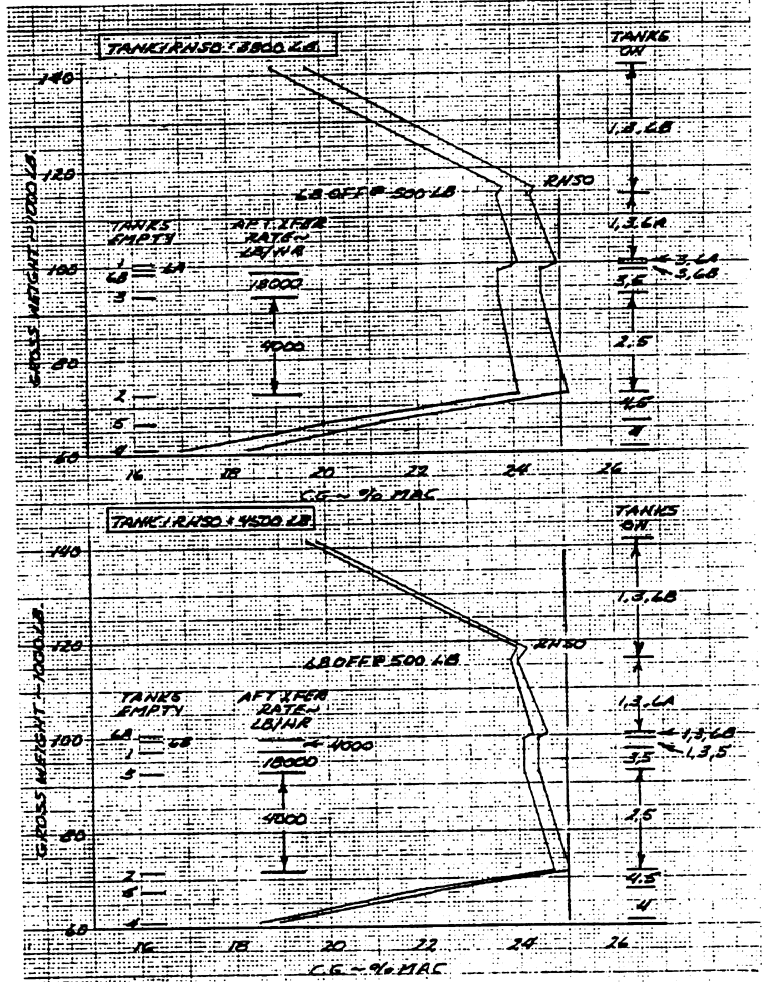 TANK 1 RHSO = 3800 LB.
TANKS
ON
140
1,3,6B
120
6B OFF @ 500 LB
RHSO
TANKS
EMPTY
AFT XFER
RATE ~
LB/HR
1,3,6A
1
6A
100
6B
3,6A
3,6B
18000
3,5
3
GROSS WEIGHT ~ 1000 LB.
4000
2,5
80
2
4,5
5
4
4
60
16
18
20
22
24
26
CG ~ % MAC
TANK 1 RHSO = 4500 LB
TANKS
ON
140
1,3,6B
120
RHSO
6B OFF @ 500 LB
TANKS
EMPTY
AFT XFER
RATE ~
LB/HR
1,3,6A
6A
100
6B
4000
1,3,6B
1
1,3,5
18000
3,5
3
GROSS WEIGHT ~ 1000 LB.
4000
2,5
80
2
4.5
4
4
60
16
18
20
22
24
26
CG ~ % MAC